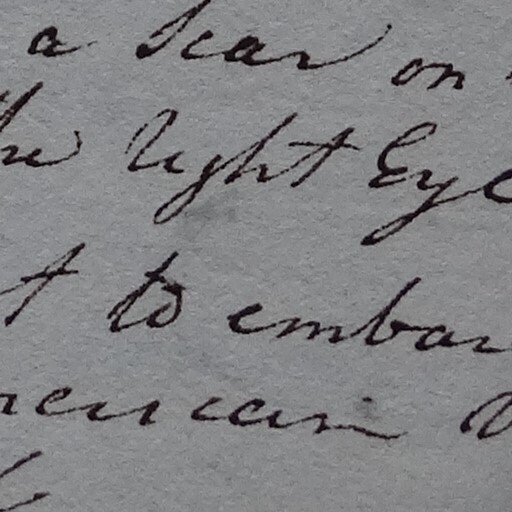 a Scar on
the right Eye
t to embar
merican